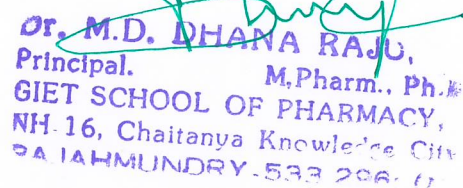 Dr. M.D. DHANA RAJU,
Principal. M,Pharm., Ph.
GIET SCHOOL OF PHARMACY,
NH-16, Chaitanya Knowledge City
RAJAHMUNDRY-533 296.